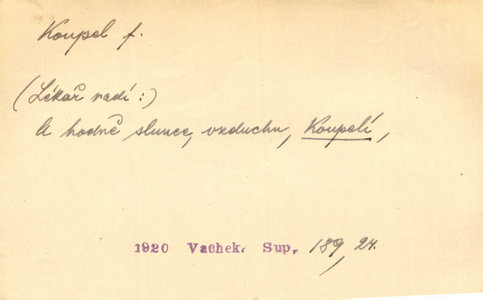 Koupel f.
(Lékař radí:)
A hodně slunce, vzduchu, Koupelí,
1920 Vachek. Sup, 189, 24.